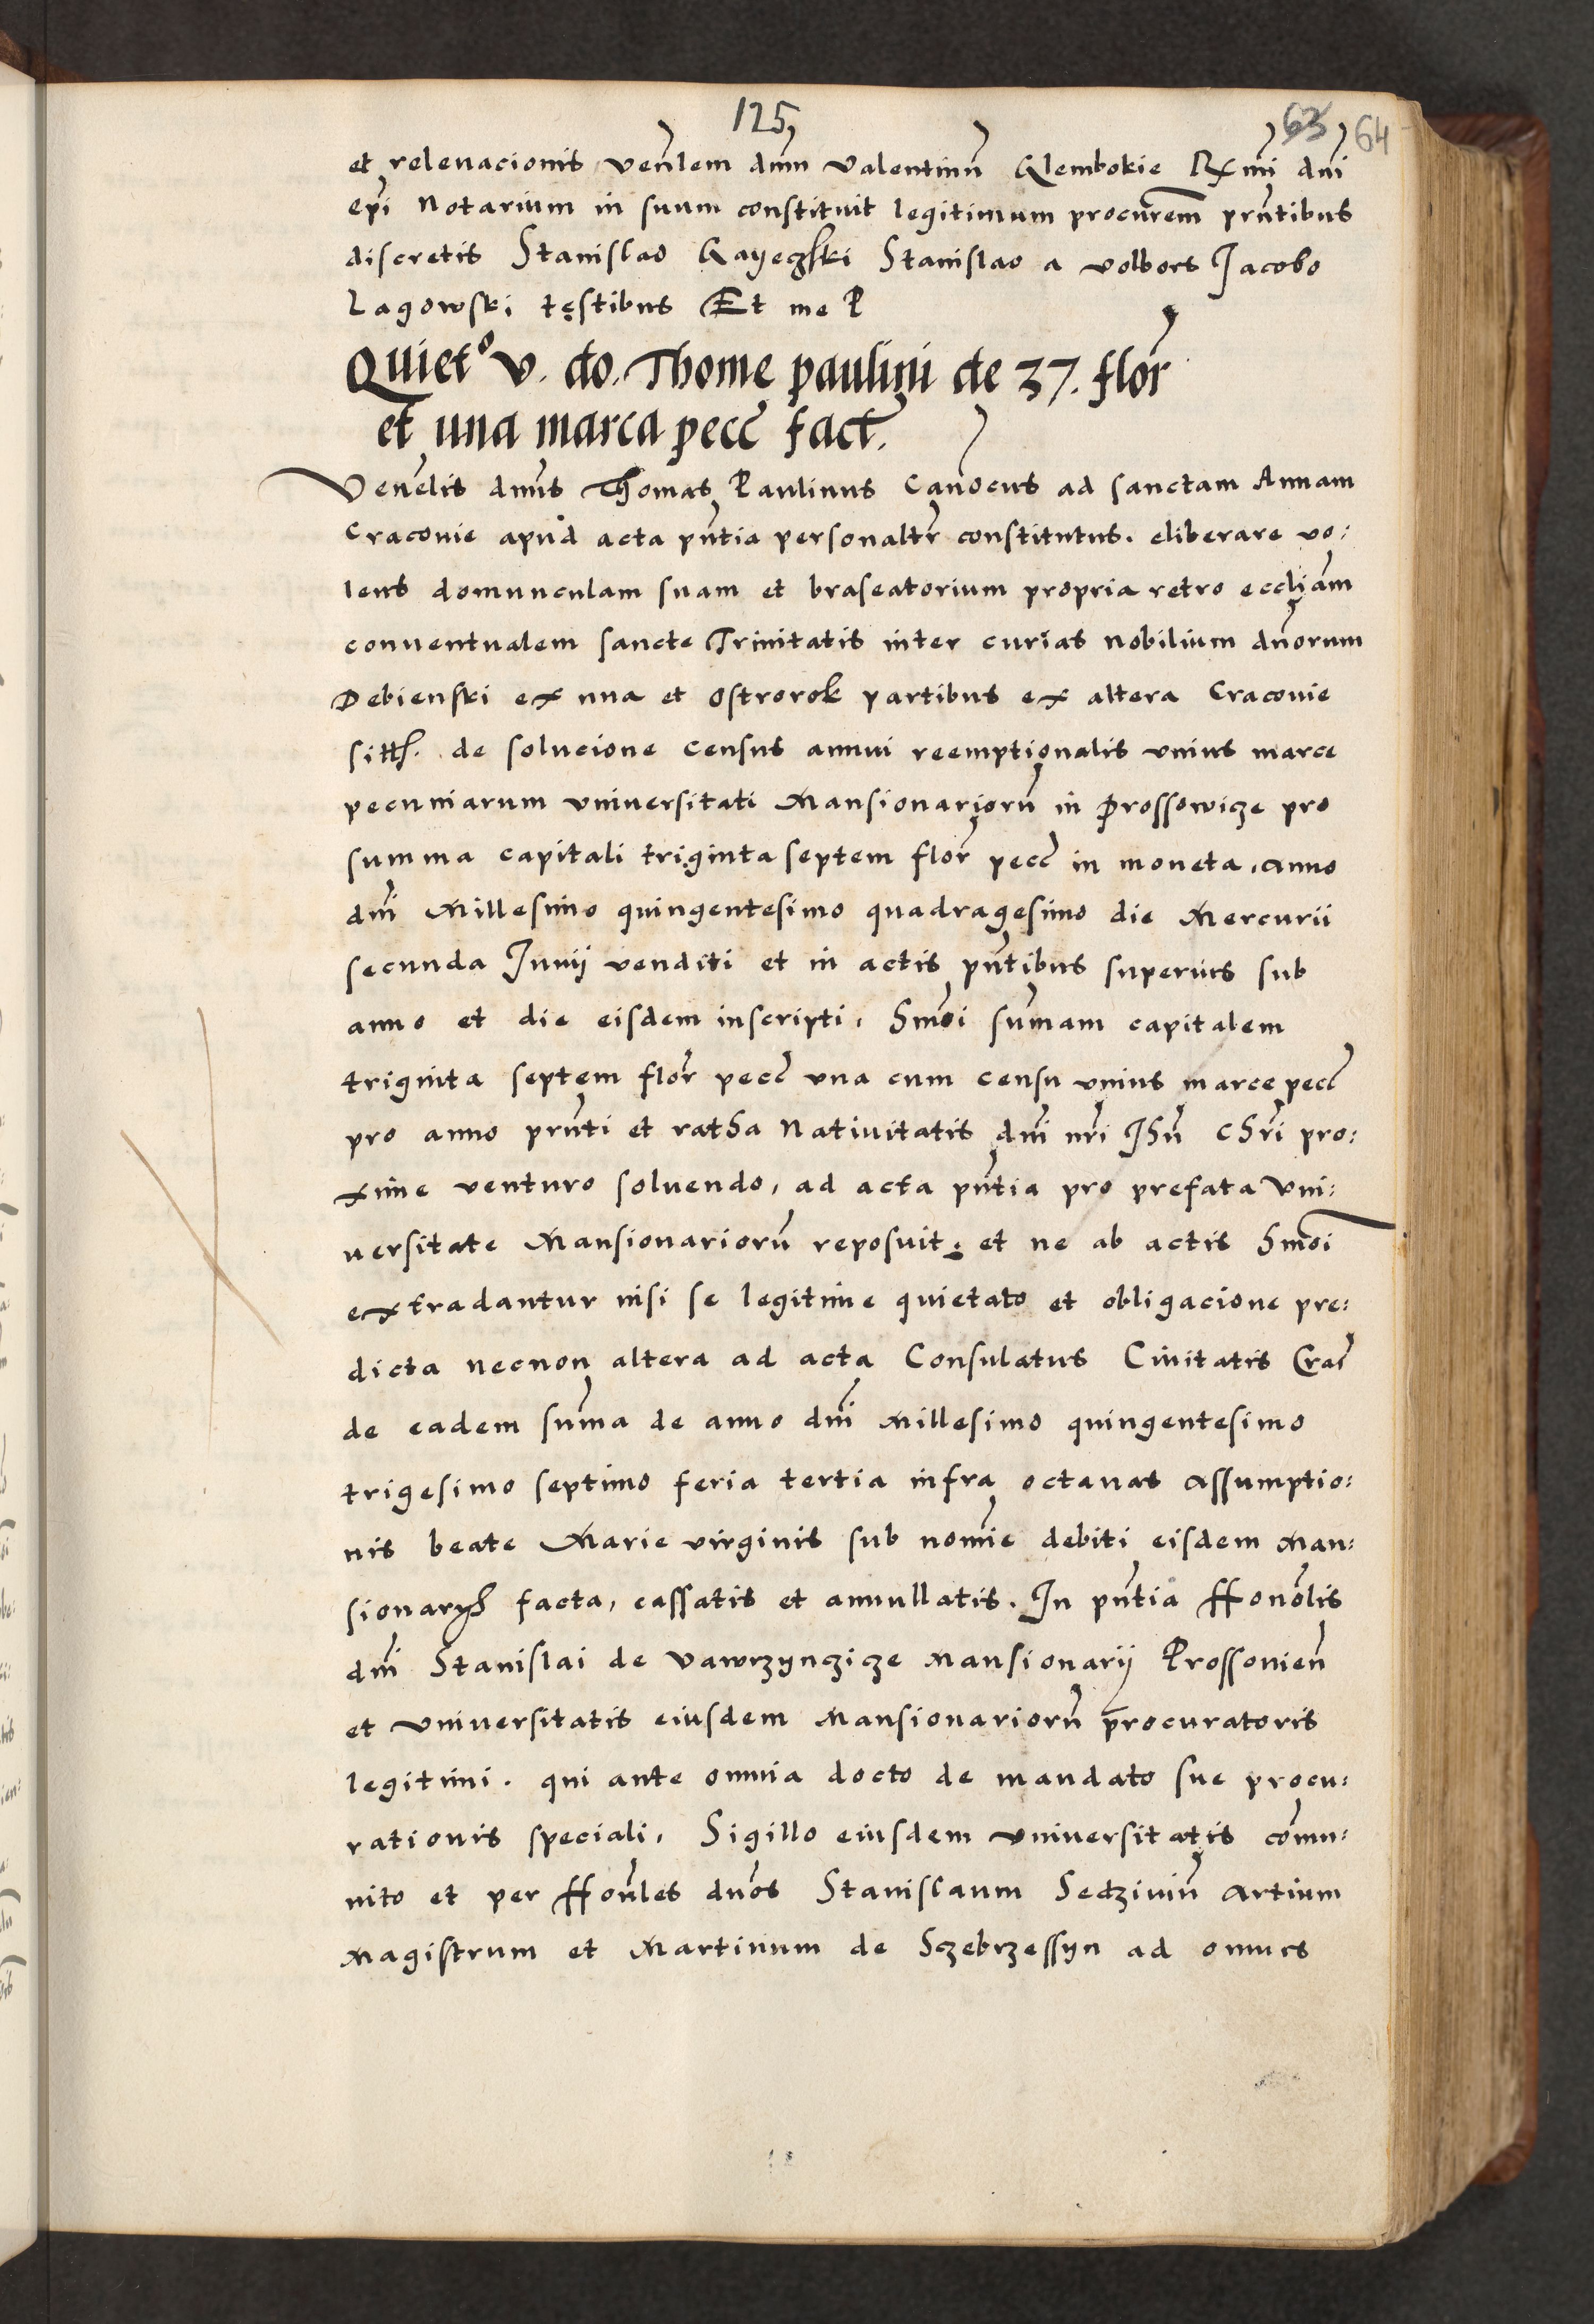 125
63 64
et relevacionis veñlem dnm Valentinũ Glembokie Rx̃mi dñi
ep̃i Notarium in suum constituit legitimum procurem̃ prñtibus
discretis Stanislao Gayeczski Stanislao a Volbors Jacobo
Lagowski tęstibus Et me P
Quietº v. do. Thome paulini de 37. flor̃
et una marca pecc̃ fact̃.
Veneľis dnñs Thomas Paulinus Canõcus ad sanctam Annam
Cracovie apud acta pñtia personaltr̃ constitutus. eliberare vo:
lens domunculam suam et braseatorium propria retro eccliãm
conventualem sancte Trinitatis inter curias nobilium dñorum
Debienski ex una et Ostrorok partibus ex altera Cracovie
sitts. de solucione census annui reemptionalis unius marce
pecuniarum universitati Mansionariorũ in Prossowicze pro
summa capitali triginta septem flor̃ pecc̃ in moneta, anno
dñi Millesimo quingentesimo quadragesimo die Mercurii
secunda Junij venditi et in actis pñtibus superius sub
anno et die eisdem inscripti, hmõi sum̃am capitalem
triginta septem flor̃ pecc̃ una cum censu unius marce pecc̃
pro anno prñti et ratha Nativitatis dñi nr̃i Jhũ Chr̃i pro:
xime venturo solvendo, ad acta pñtia pro prefata Uni:
versitate Mansionariorũ reposuit; et ne ab actis hmõi
extradantur nisi se legitime quietato et obligacione pre:
dicta necnon altera ad acta Consulatus Civitatis Crac̃
de eadem sum̃a de anno dñi Millesimo quingentesimo
trigesimo septimo feria tertia infra octavas Assumptio:
nis beate Marie virginis sub nomĩe debiti eisdem Man:
sionarijs facta, cassatis et annullatis. In pñtia ffonoľlis
dñi Stanislai de Vawrzynczicze Mansionarij Prossovieñ
et universitatis eiusdem Mansionariorũ procuratoris
legitimi. qui ante omnia docto de mandato sue procu:
rationis speciali, Sigillo eiusdem universitatis com̃u:
nito et per ffoñles dños Stanislaum Sedzivium̃ Artium
Magistrum et Martinum de Sczebrzessyn ad omnes